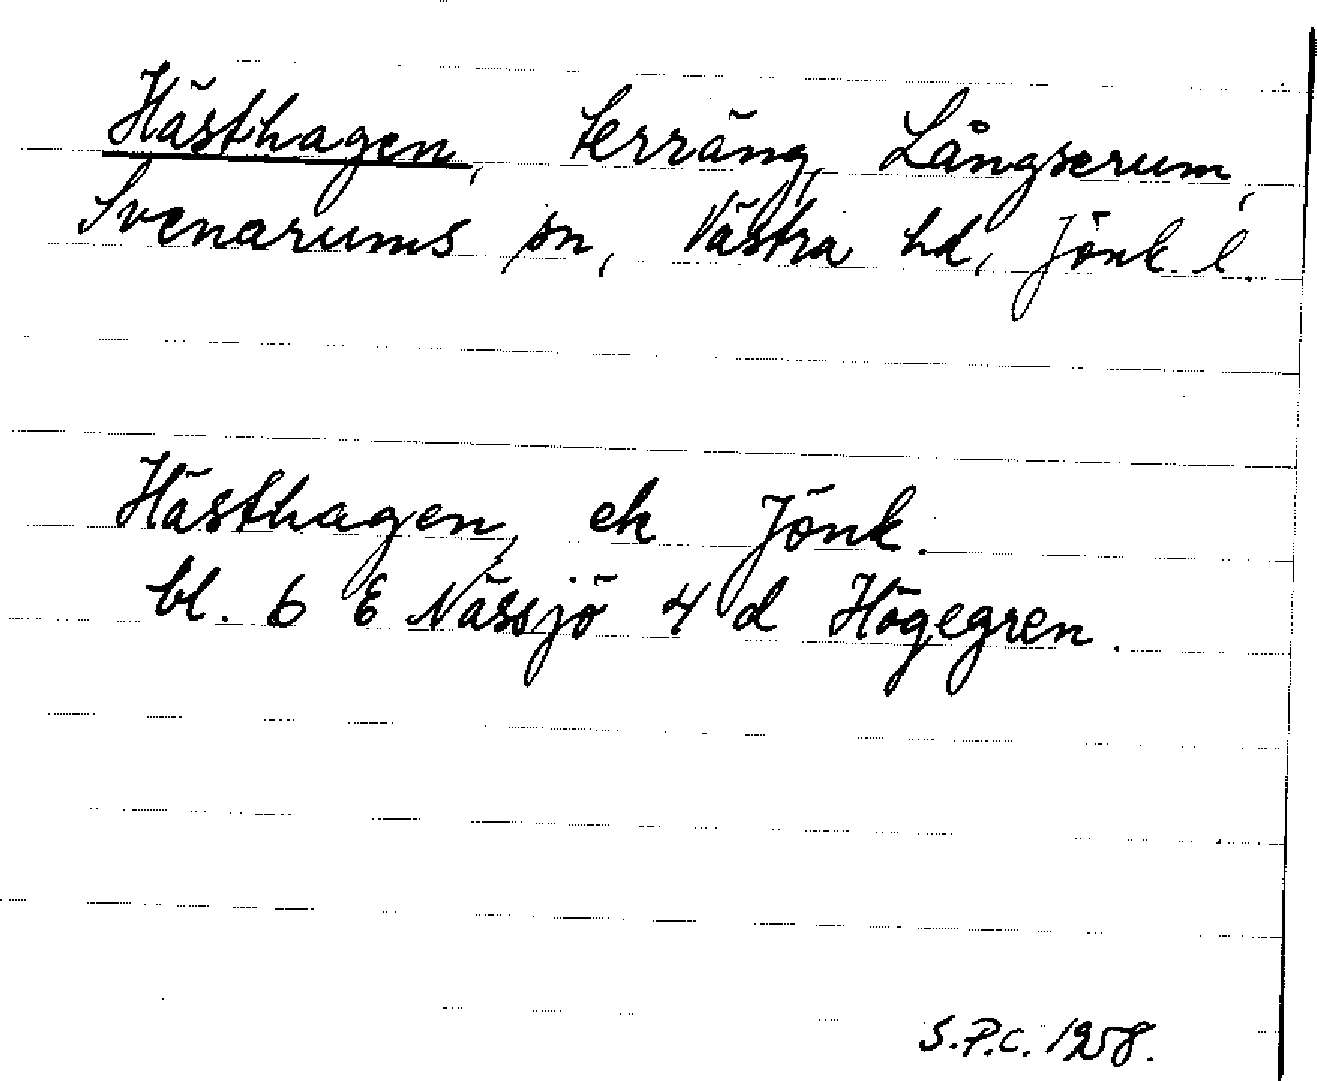 Hästhagen, terräng, Långserum,
Svenarums sn, Västra hd, Jönk. l.
Hästhagen, ek Jönk.
bl. 6 E Nässjö 4 d Högegren.
S.P.C. 1958.